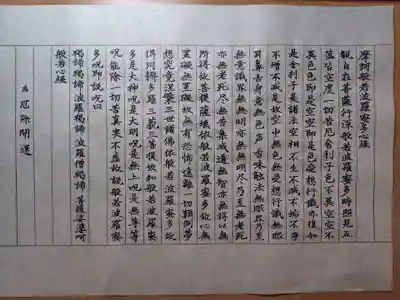 摩訶般若波羅蜜多心経
観自在菩薩行深般若波羅蜜多時照見五
蘊皆空度一切苦厄舎利子色不異空空不
異色色即是空空即是色受想行識亦復如
是舎利子是諸法空相不生不滅不垢不浄
不増不減是故空中無色無受想行識無眼
耳鼻舌身意無色声香味触法無眼界乃至
無意識界無無明亦無無明尽乃至無老死
亦無老死尽無苦集滅道無智亦無得以無
所得故菩提薩埵依般若波羅蜜多故心無
罣礙無罣礙故無有恐怖遠離一切顛倒夢
想究竟涅槃三世諸佛依般若波羅蜜多故
得阿耨多羅三藐三菩提故知般若波羅蜜
多是大神呪是大明呪是無上呪是無等等
呪能除一切苦真実不虚故説般若波羅蜜
多呪即説呪曰
羯諦羯諦波羅羯諦波羅僧羯諦菩提娑婆訶
般若心経
為 厄除開運